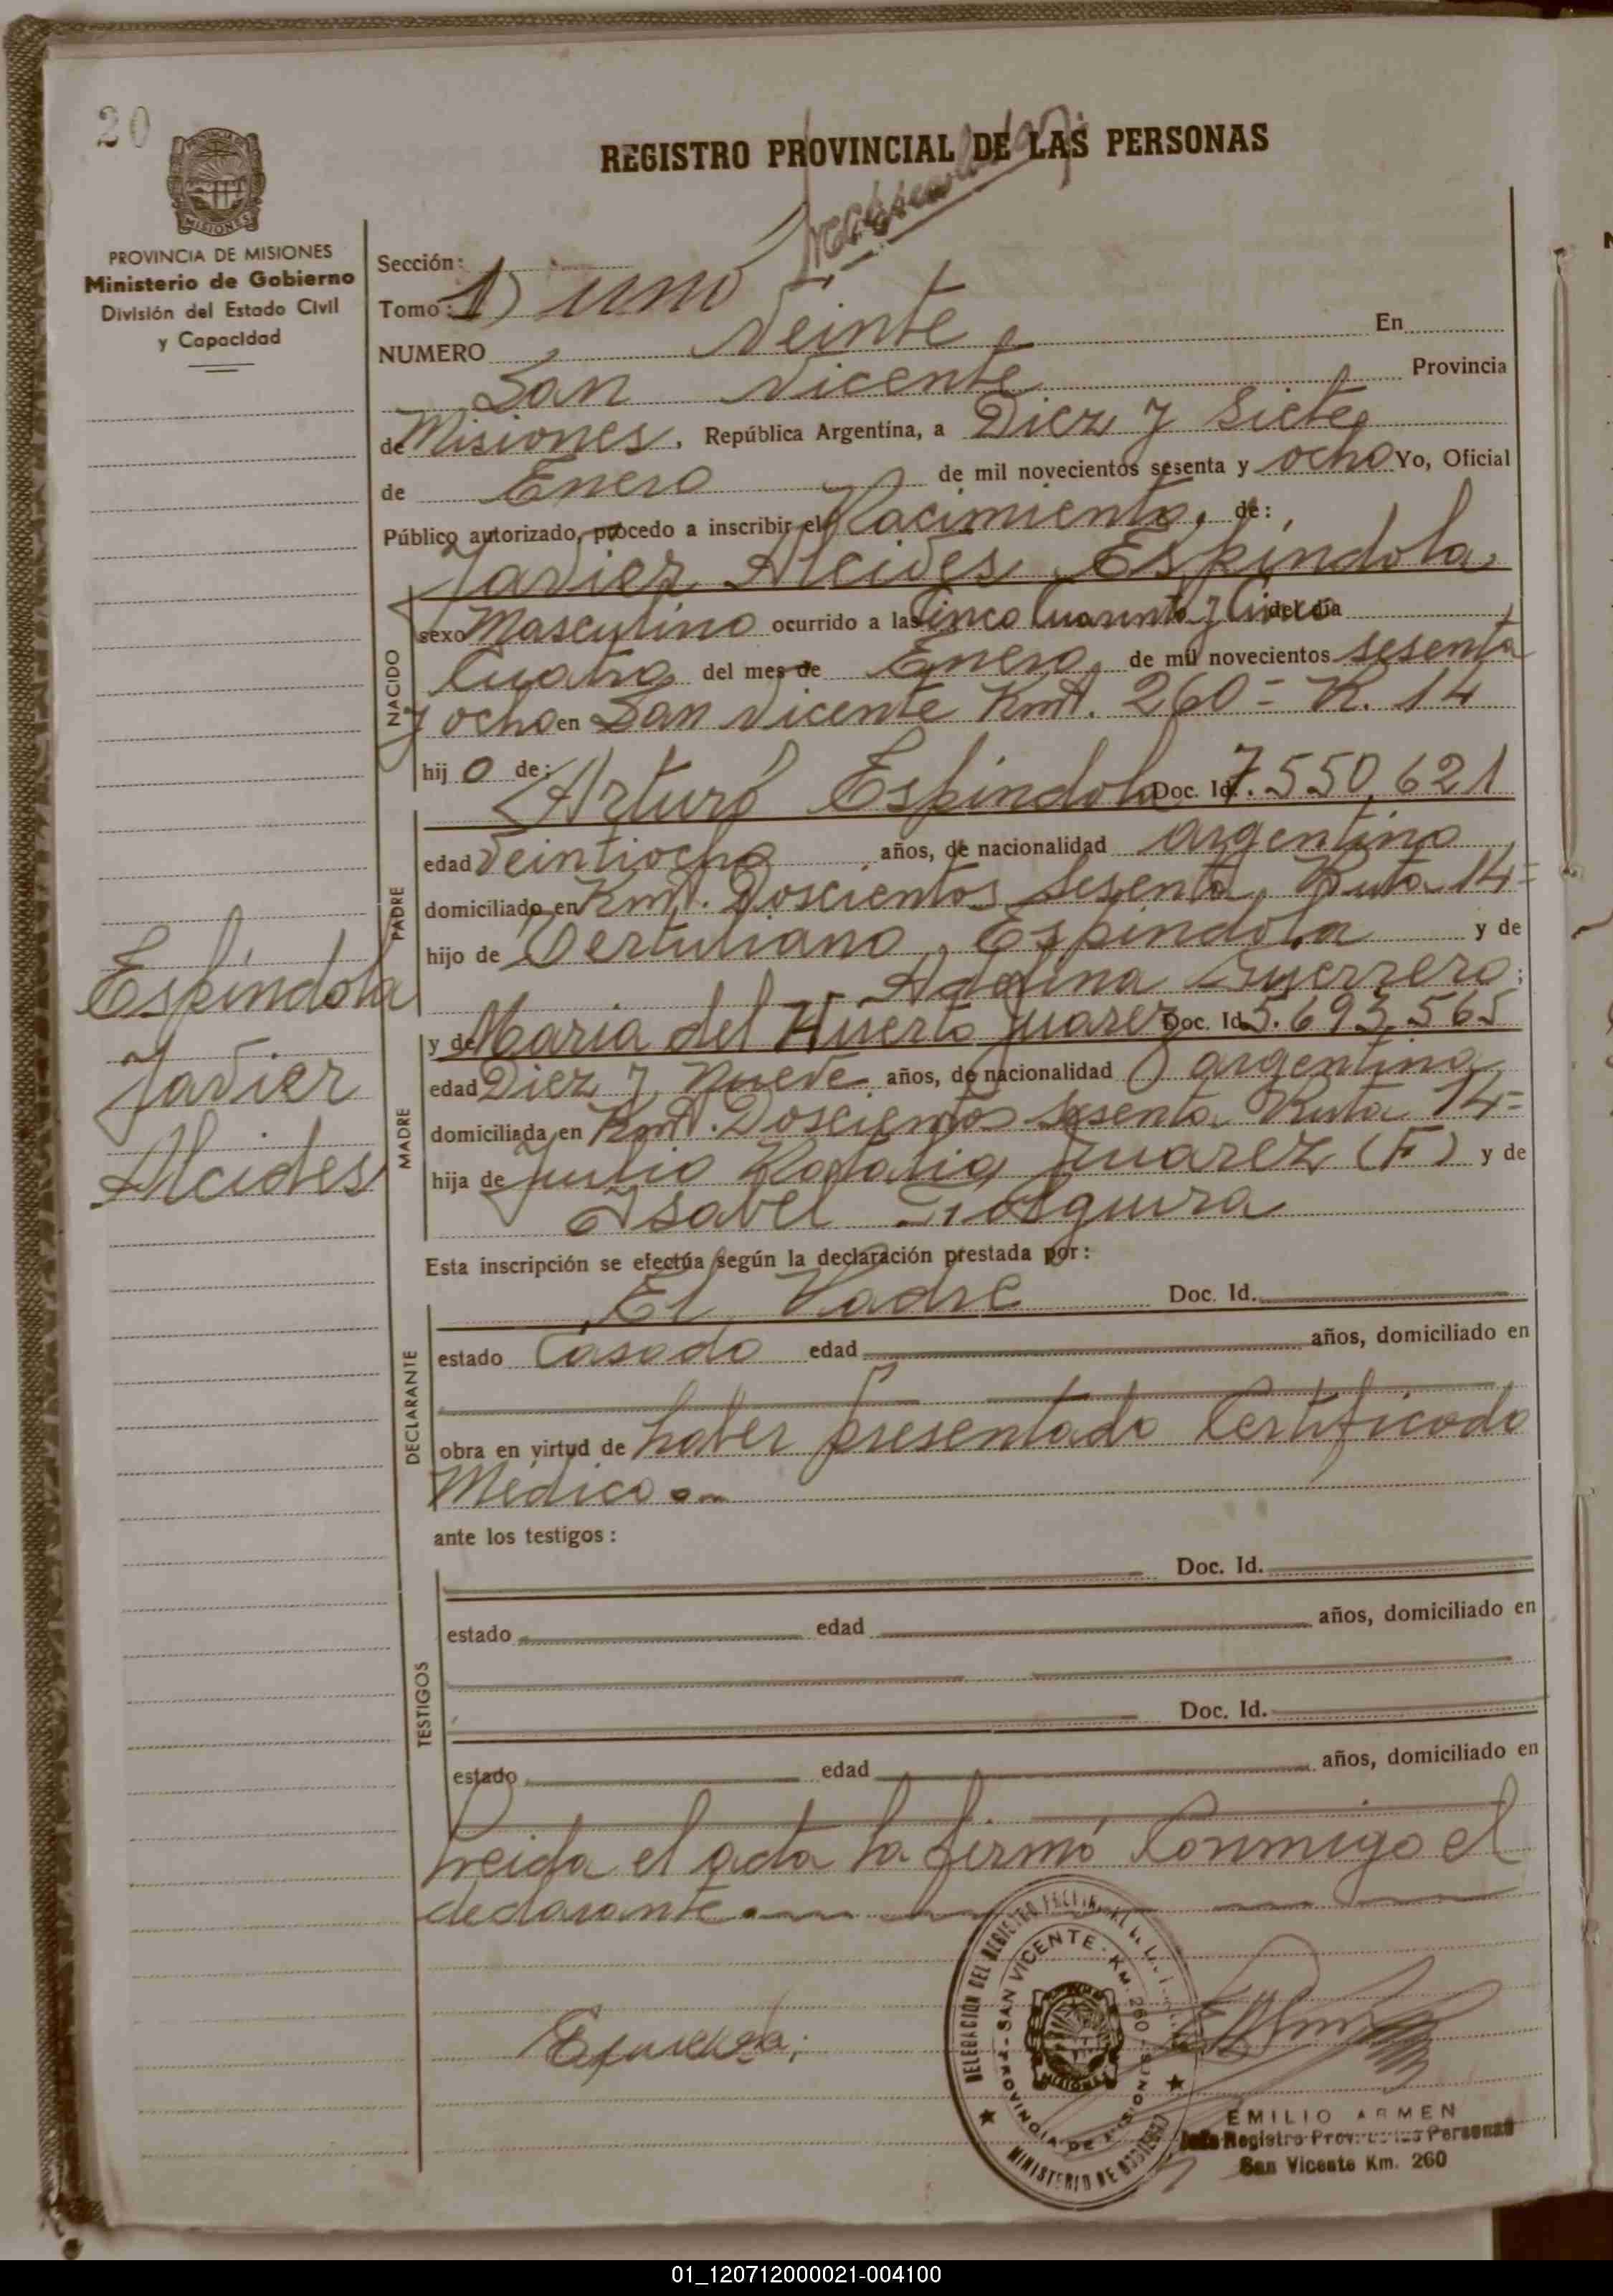 20
REGISTRO PROVINCIAL DE LAS PERSONAS
MISIONES
PROVINCIA DE MISIONES
Ministerio de Gobierno
División del Estado Civil
y Capacidad
Sección:
Tomo: 1) uno
NUMERO Veinte En
San Vicente Provincia
de Misiones, República Argentina, a Diez y Siete
de Enero de mil novecientos sesenta y ocho Yo, Oficial
Público autorizado, procedo a inscribir el Nacimiento, de:
Javier Alcides Espíndola
NACIDO
sexo Masculino ocurrido a las Cinco Cuarenta y Cinco del día
Cuatro del mes de Enero, de mil novecientos sesenta
y ocho en San Vicente Kmt. 260 = R. 14
hij o de:
PADRE
Arturo Espíndola Doc. Id. 7.550.621
edad Veintiocho años, de nacionalidad argentino
domiciliado en Kmt. Doscientos Sesenta, Ruta 14=
hijo de Tertuliano Espíndola y de
Adelina Guerrero;
MADRE
y de Maria del Huerto Juarez Doc. Id. 5.693.565
edad Diez y Nueve años, de nacionalidad argentina
domiciliada en Kmt. Doscientos Sesenta Ruta 14=
hija de Julio Juarez (F) y de
Isabel
Espíndola
Javier
Alcides
Esta inscripción se efectúa según la declaración prestada por:
DECLARANTE
El Padre Doc. Id.
estado Casado edad años, domiciliado en
obra en virtud de haber presentado Certificado
Médico
ante los testigos:
TESTIGOS
Doc. Id.
estado edad años, domiciliado en
Doc. Id.
estado edad años, domiciliado en
Leida el acta la firmó Conmigo el
declarante
DELEGACIÓN DEL REGISTRO
SAN VICENTE - KM. 260
PROVINCIA DE MISIONES
MINISTERIO DE GOBIERNO
MISIONES
EMILIO ARMEN
Jefe Registro Prov. de las Personas
San Vicente Km. 260
01_120712000021-004100